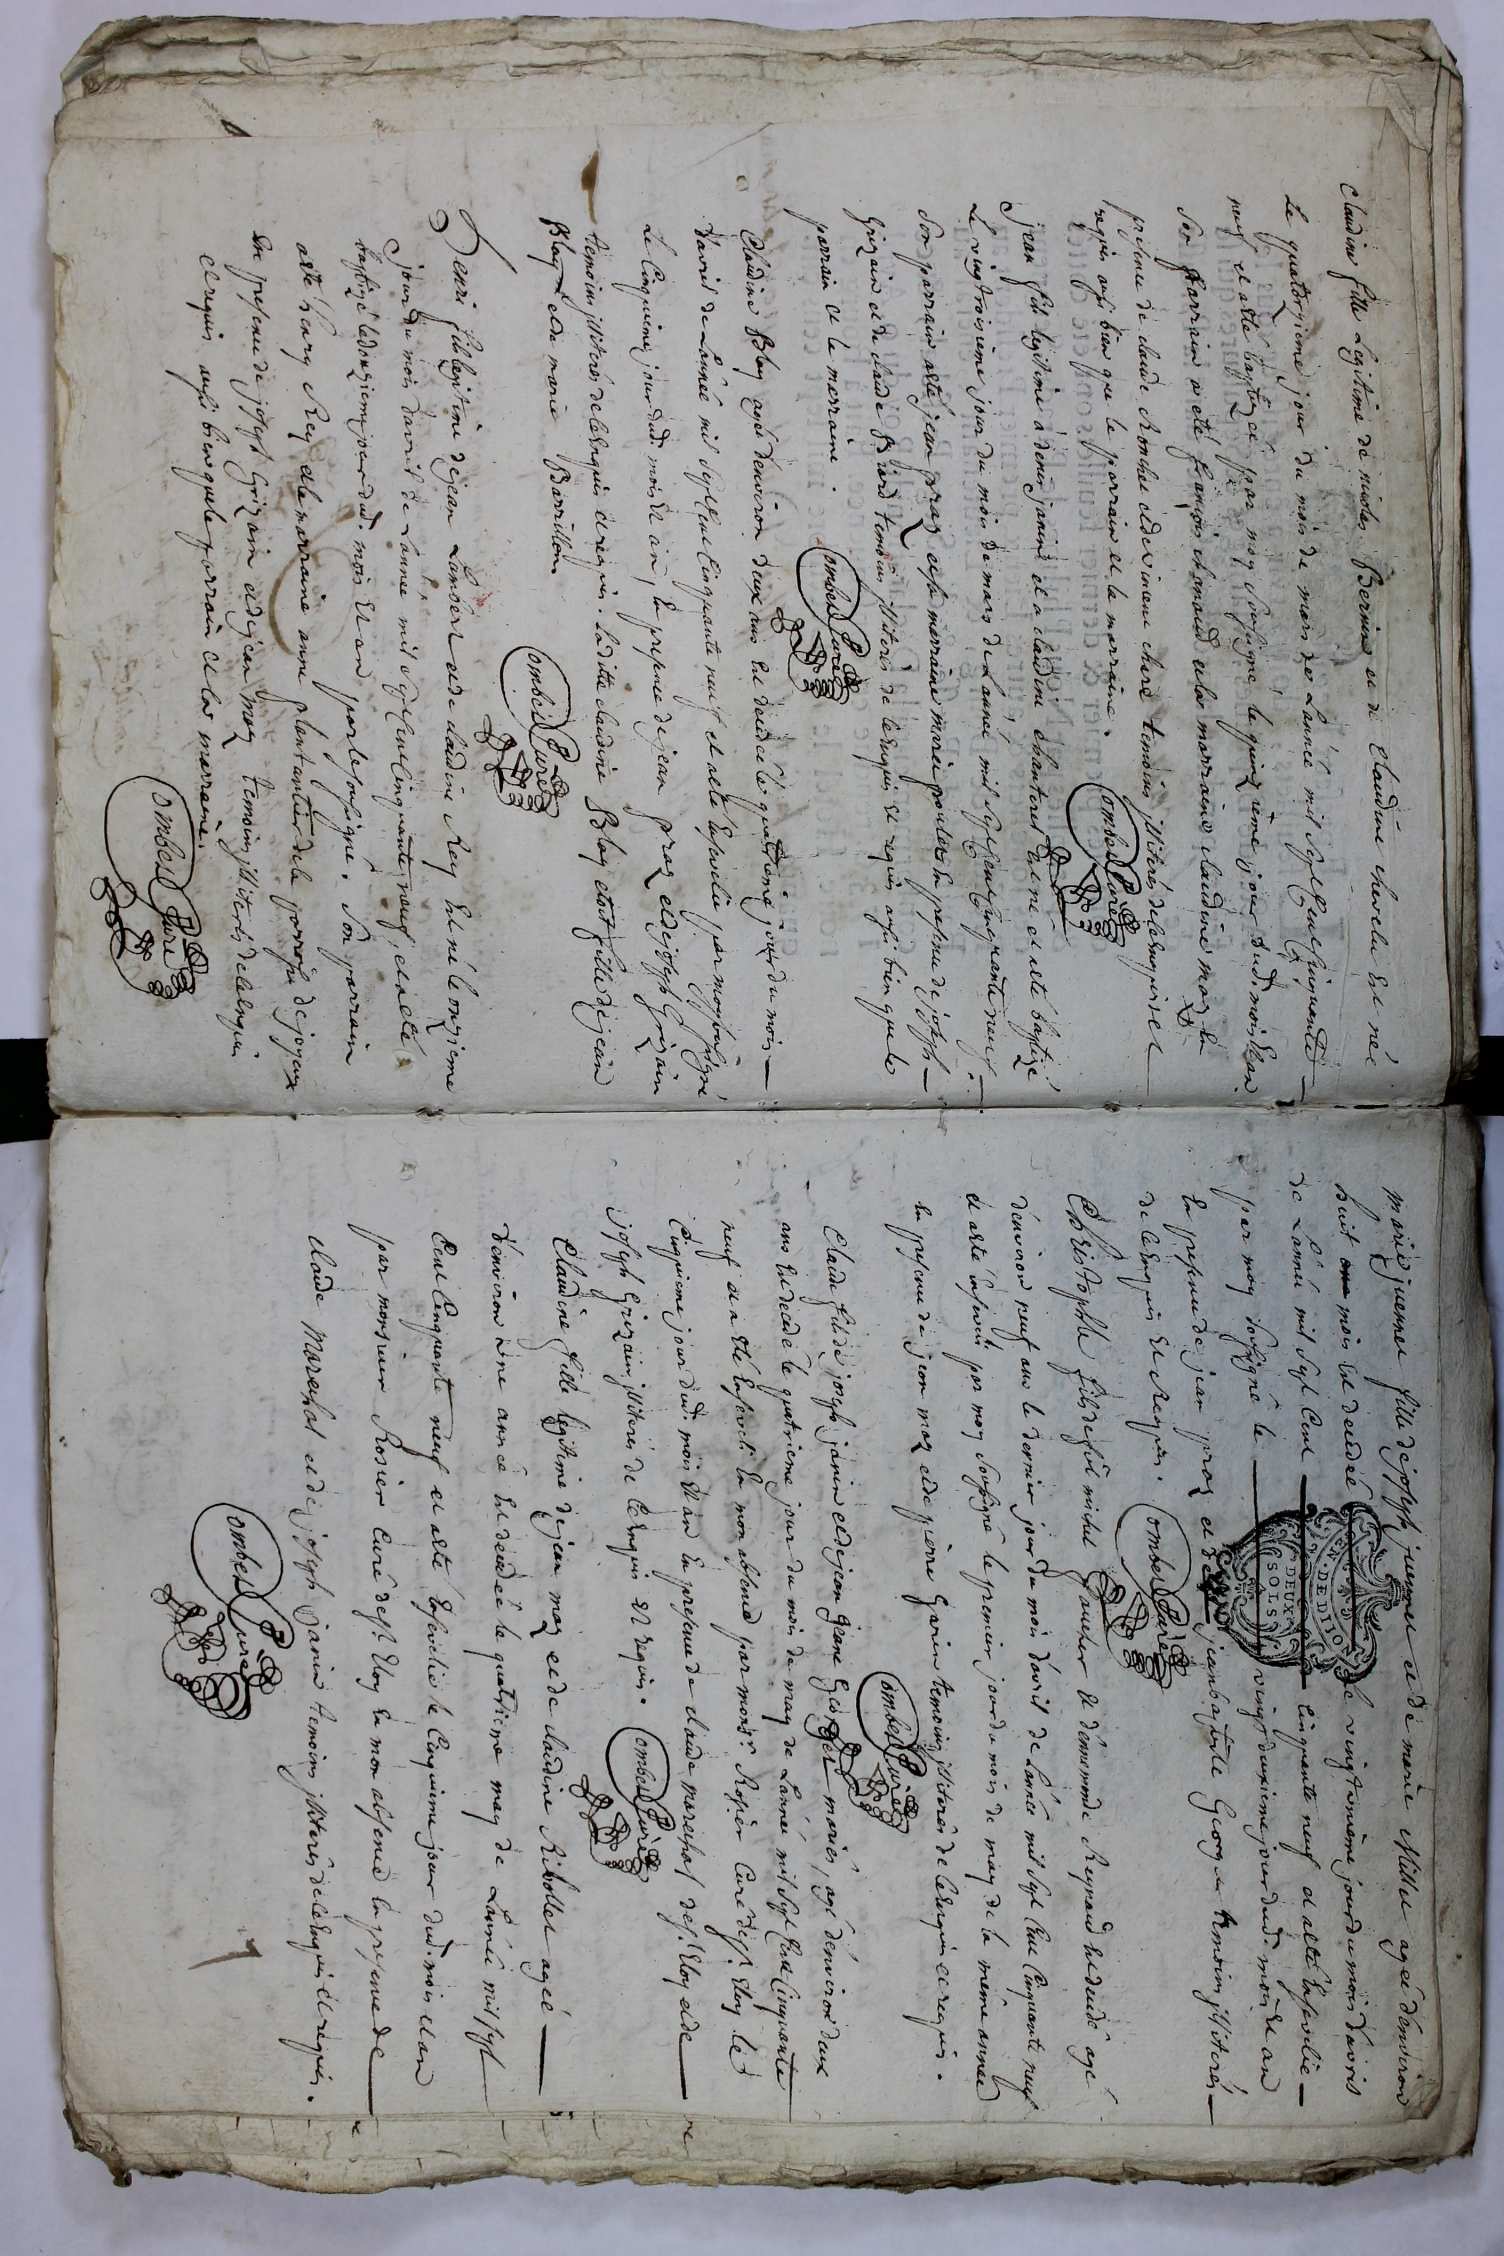 Claudine fille Legitime de nicolas Bernin et de Claudine chevelu Est née
Le quatorzieme jour du mois de mars de Lannée mil sept Cent Cinquante
neuf et a eté baptizeé par moy soussigné le quinzième jour dud. mois et an
Son parrain a eté françois chanaud et la marraine claudine maz En
presence de claude Ronchat et de vincent chere temoins illiterés de Lenquis et
requis aussi bien que le parrain et la marraine.
ombet Curé
jean fils legitime a denis janin et a claudine chanteret Est né et eté baptizé
Le vingtroisieme jour du mois de mars de Lanneé mil sept Cent Cinquante neuf.
Son parrain a eté jean praz et sa marraine marie En presence de joseph
Grizain et de claude Briord temoins illiterés de Lenquis et requis aussi bien que le
parrain et la marraine.
ombet Curé
Claudine Blay ageé d'environ deux ans Est decedeé le quatrieme jour du mois
d'avril de Lanneé mil sept Cent Cinquante neuf et a eté Ensevelie par moy soussigné
Le Cinquieme jour dud. mois et an, En presence de jean praz et de joseph Grizain
temoins illiterés de Lenquis et requis. Laditte claudine Blay etoit fille de jean
Blay et de marie Barrillon.
ombet Curé
Henri fils legitime de jean Lambert et de claudine Rey Est né le onzieme
jour du mois d'avril de Lannée mil sept Cent Cinquante neuf, et a eté
baptizé le douzieme jour dud. mois et an par le soussigné. Son parrain
a eté henry Rey et la marraine anne plantantier de la parroisse de joyeux
En presence de joseph Grizain et de jean maz temoins illiterés de lenquis
et requis aussi bien que le parrain et la marraine.
ombet Curé
Marie juenne fille de joseph juenne et de marie Millet ageé d'environ
huit mois Est decedeé le vingtunième jour du mois d'avril
de Lanneé mil sept Cent Cinquante neuf et a eté Ensevelie
par moy soussigné le vingt deuxieme jour dud. mois et an
En presence de jean praz et de jean baptiste George temoins illiterés
de Lenquis et Requis.
ombet Curé
DEUX
SOLS
Christophle fils de fût michel Gaucher et d'ennemonde Reynaud Est decedé agé
d'environ neuf ans le dernier jour du mois d'avril de Lanneé mil sept Cent Cinquante neuf
et a eté enseveli par moy soussigné le premier jour du mois de may de la même année
En presence de jean maz et de pierre Gavin temoins illiterés de Lenquis et requis.
ombet Curé
Claude fils de joseph janin et de jean jeane mariés, agé d'environ deux
ans Est decedé le quatrieme jour du mois de may de Lanneé mil sept Cent Cinquante
neuf et a eté Enseveli En mon absence par monsr. Rosier Curé de st. Eloy le
Cinquieme jour dud. mois et an En presence de claude Marechal de st. Eloy et de
joseph Grizain illiterés de Lenquis et requis.
ombet Curé
Claudine fille legitime de jean maz et de claudine Ribollet ageé
d'environ une anneé Est decedeé le quatrieme may de Lanneé mil sept
Cent Cinquante neuf et a eté Ensevelie le Cinquieme jour dud. mois et an
par monsieur Rosier Curé de st. Eloy En mon absence En presence de
claude Marechal et de joseph janin temoins illiterés de lenquis et requis.
ombet Curé